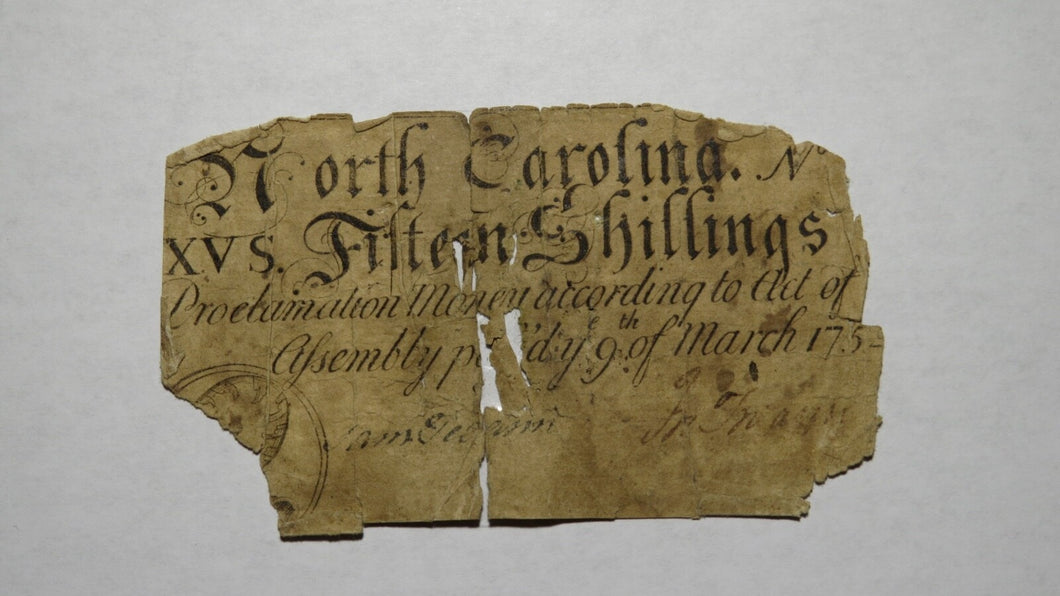 North Carolina. No
XVS. Fifteen Shillings
Proclamation Money according to Act of
Assembly ye 9th of March 175